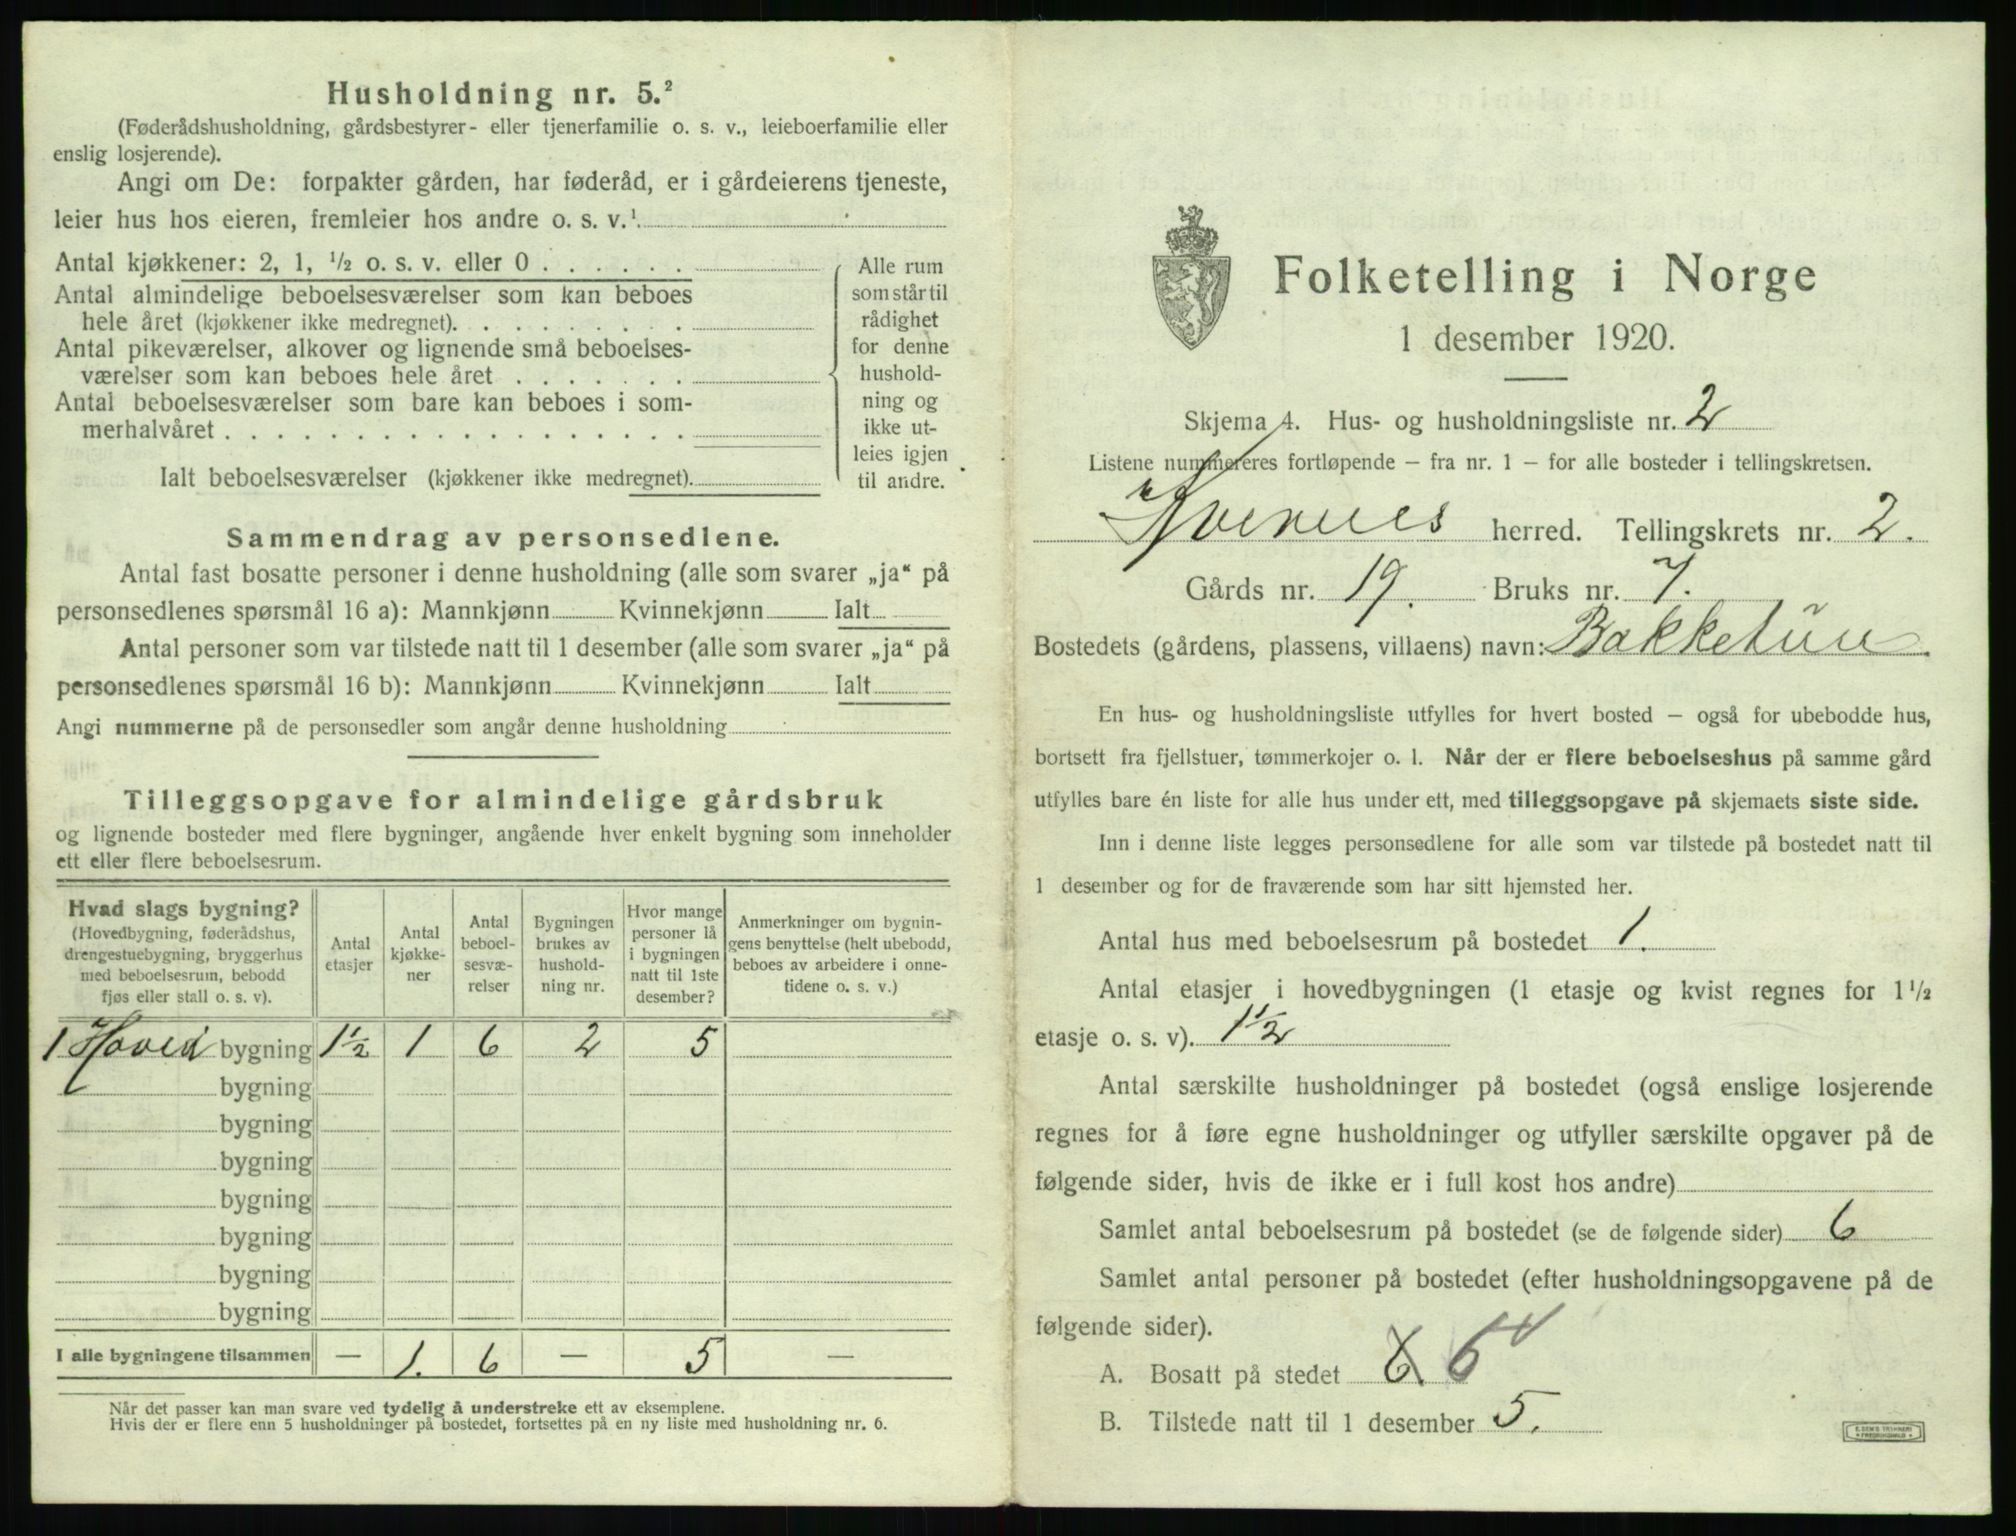 Husholdning nr. 5.²
(Føderådshusholdning, gårdsbestyrer- eller tjenerfamilie o. s. v., leieboerfamilie eller
enslig losjerende).
Angi om De: forpakter gården, har føderåd, er i gårdeierens tjeneste,
leier hus hos eieren, fremleier hos andre o. s. v.¹
Antal kjøkkener: 2, 1, ½ o. s. v. eller 0 . . . . . .
Antal almindelige beboelsesværelser som kan beboes
hele året (kjøkkener ikke medregnet). . . . . . . . .
Antal pikeværelser, alkover og lignende små beboelses-
værelser som kan beboes hele året . . . . . . .
Antal beboelsesværelser som bare kan beboes i som-
merhalvåret . . . . . . . . . . . . . . . . . .
Ialt beboelsesværelser (kjøkkener ikke medregnet).
Alle rum
som står til
rådighet
for denne
hushold-
ning og
ikke ut-
leies igjen
til andre.
Sammendrag av personsedlene.
Antal fast bosatte personer i denne husholdning (alle som svarer „ja“ på
personsedlenes spørsmål 16 a): Mannkjønn Kvinnekjønn Ialt
Antal personer som var tilstede natt til 1 desember (alle som svarer „ja“ på
personsedlenes spørsmål 16 b): Mannkjønn Kvinnekjønn Ialt
Angi nummerne på de personsedler som angår denne husholdning
Tilleggsopgave for almindelige gårdsbruk
og lignende bosteder med flere bygninger, angående hver enkelt bygning som inneholder
ett eller flere beboelsesrum.
Hvad slags bygning?
(Hovedbygning, føderådshus,
drengestuebygning, bryggerhus
med beboelsesrum, bebodd
fjøs eller stall o. s. v).
Antal
etasjer
Antal
kjøkke-
ner
Antal
beboel-
sesvæ-
relser
Bygningen
brukes av
hushold-
ning nr.
Hvor mange
personer lå
i bygningen
natt til 1ste
desember?
Anmerkninger om bygnin-
gens benyttelse (helt ubebodd,
beboes av arbeidere i onne-
tidene o. s. v.)
1 Hoved bygning 1½ 1 6 2 5
bygning
bygning
bygning
bygning
bygning
bygning
bygning
I alle bygningene tilsammen — 1. 6 — 5 —
Når det passer kan man svare ved tydelig å understreke ett av eksemplene.
Hvis der er flere enn 5 husholdninger på bostedet, fortsettes på en ny liste med husholdning nr. 6.
Folketelling i Norge
1 desember 1920.
Skjema 4. Hus- og husholdningsliste nr. 2
Listene nummereres fortløpende – fra nr. 1 – for alle bosteder i tellingskretsen.
Kvernes herred. Tellingskrets nr. 2.
Gårds nr. 19. Bruks nr. 7.
Bostedets (gårdens, plassens, villaens) navn: Bakketun
En hus- og husholdningsliste utfylles for hvert bosted – også for ubebodde hus,
bortsett fra fjellstuer, tømmerkojer o. l. Når der er flere beboelseshus på samme gård
utfylles bare én liste for alle hus under ett, med tilleggsopgave på skjemaets siste side.
Inn i denne liste legges personsedlene for alle som var tilstede på bostedet natt til
1 desember og for de fraværende som har sitt hjemsted her.
Antal hus med beboelsesrum på bostedet 1.
Antal etasjer i hovedbygningen (1 etasje og kvist regnes for 1½
etasje o. s. v). 1½
Antal særskilte husholdninger på bostedet (også enslige losjerende
regnes for å føre egne husholdninger og utfyller særskilte opgaver på de
følgende sider, hvis de ikke er i full kost hos andre)
Samlet antal beboelsesrum på bostedet (se de følgende sider) 6
Samlet antal personer på bostedet (efter husholdningsopgavene på de
følgende sider).
A. Bosatt på stedet 6
B. Tilstede natt til 1 desember 5.